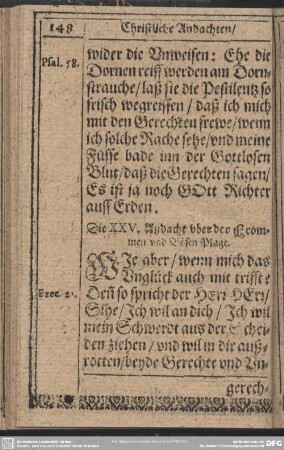 148 Christliche Andachten/
Psal. 58.
wider die Vnweisen: Ehe die
Dornen reiff werden am Dorn-
strauche/ laß sie die Pestilentz so
frisch wegreiffen/ daß ich mich
mit den Gerechten frewe/ wenn
ich solche Rache sehe/ vnd meine
Füsse bade inn der Gottlosen
Blut/ daß die Gerechten sagen/
Es ist ja noch GOtt Richter
auff Erden.
Die XXV. Andacht vber der From-
men vnd Bösen Plage.
WIe aber/ wenn mich das
Vnglück auch mit trifft?
Ezec. 21.
Deñ so spricht der HErr HErr/
Sihe/ Ich wil an dich/ Ich wil
mein Schwerdt aus der Schei-
den ziehen/ vnd wil in dir auß-
rotten/ beyde Gerechte vnd Vn-
gerech-
DFG